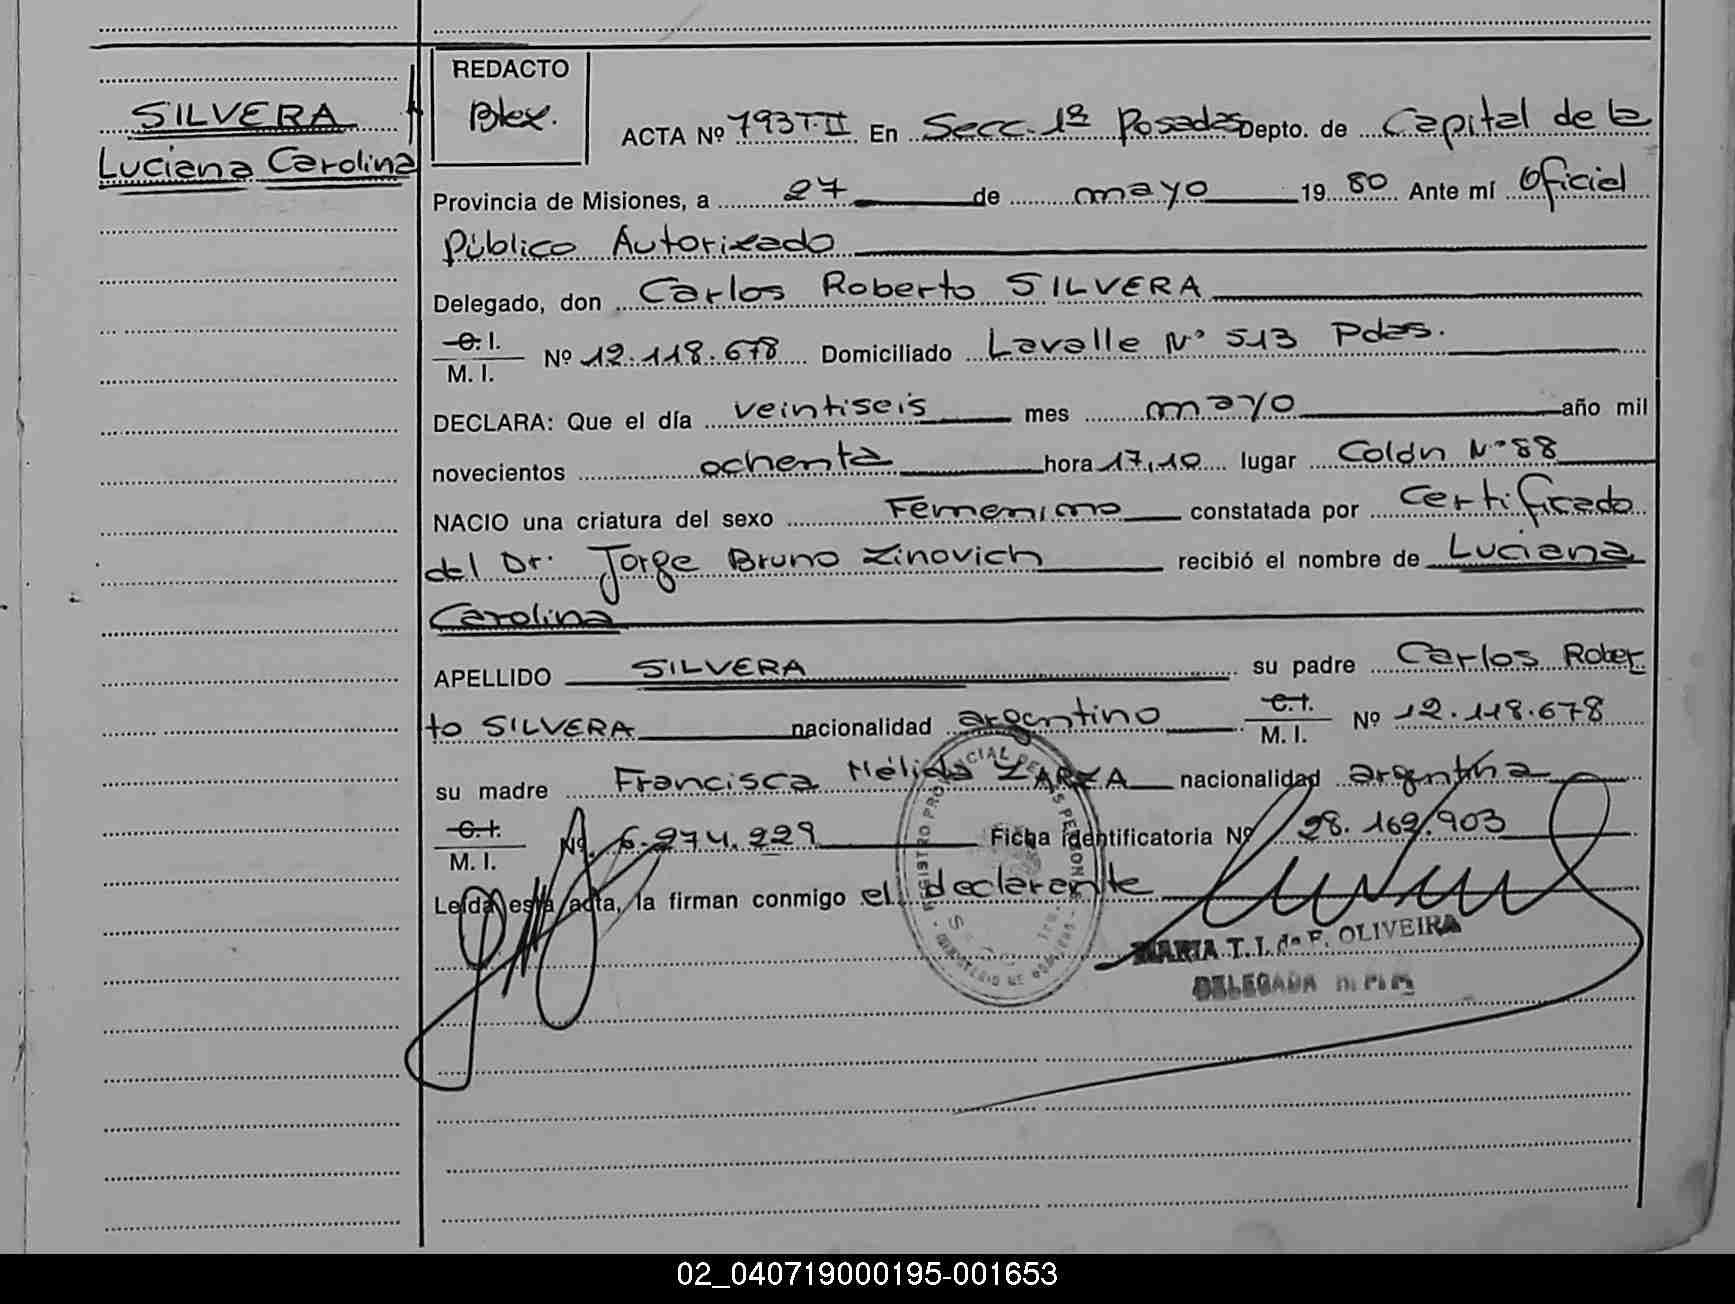 SILVERA
Luciana Carolina
REDACTO
Blex.
ACTA Nº 793 T.II En Secc. 1ª Posadas Depto. de Capital de la
Provincia de Misiones, a 27 de mayo 19 80 Ante mí Oficial
Público Autorizado
Delegado, don Carlos Roberto SILVERA
C. I.
M. I. Nº 12.118.678 Domiciliado Lavalle Nº 513 Pdas.
DECLARA: Que el día veintiseis mes mayo año mil
novecientos ochenta hora 17,10 lugar Colón Nº 88
NACIO una criatura del sexo Femenino constatada por Certificado
del Dr. Jorge Bruno Zinovich recibió el nombre de Luciana
Carolina
APELLIDO SILVERA su padre Carlos Rober
to SILVERA nacionalidad argentino C. I. M. I. Nº 12.118.678
su madre Francisca Nélida ZARZA nacionalidad argentina
C. I.
M. I. Nº 6.274.229 Ficha Identificatoria Nº 28.169.903
Leída esta acta, la firman conmigo el declarente
REGISTRO PROVINCIAL DE LAS PERSONAS
MARIA T. I. de F. OLIVEIRA
DELEGADA
02_040719000195-001653